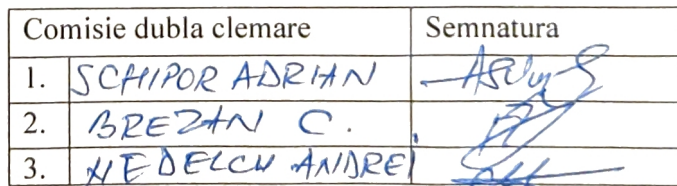 Comisie dubla clemare Semnatura
1. SCHIPOR ADRIAN
2. BREZAN C.
3. NEDELCU ANDREI